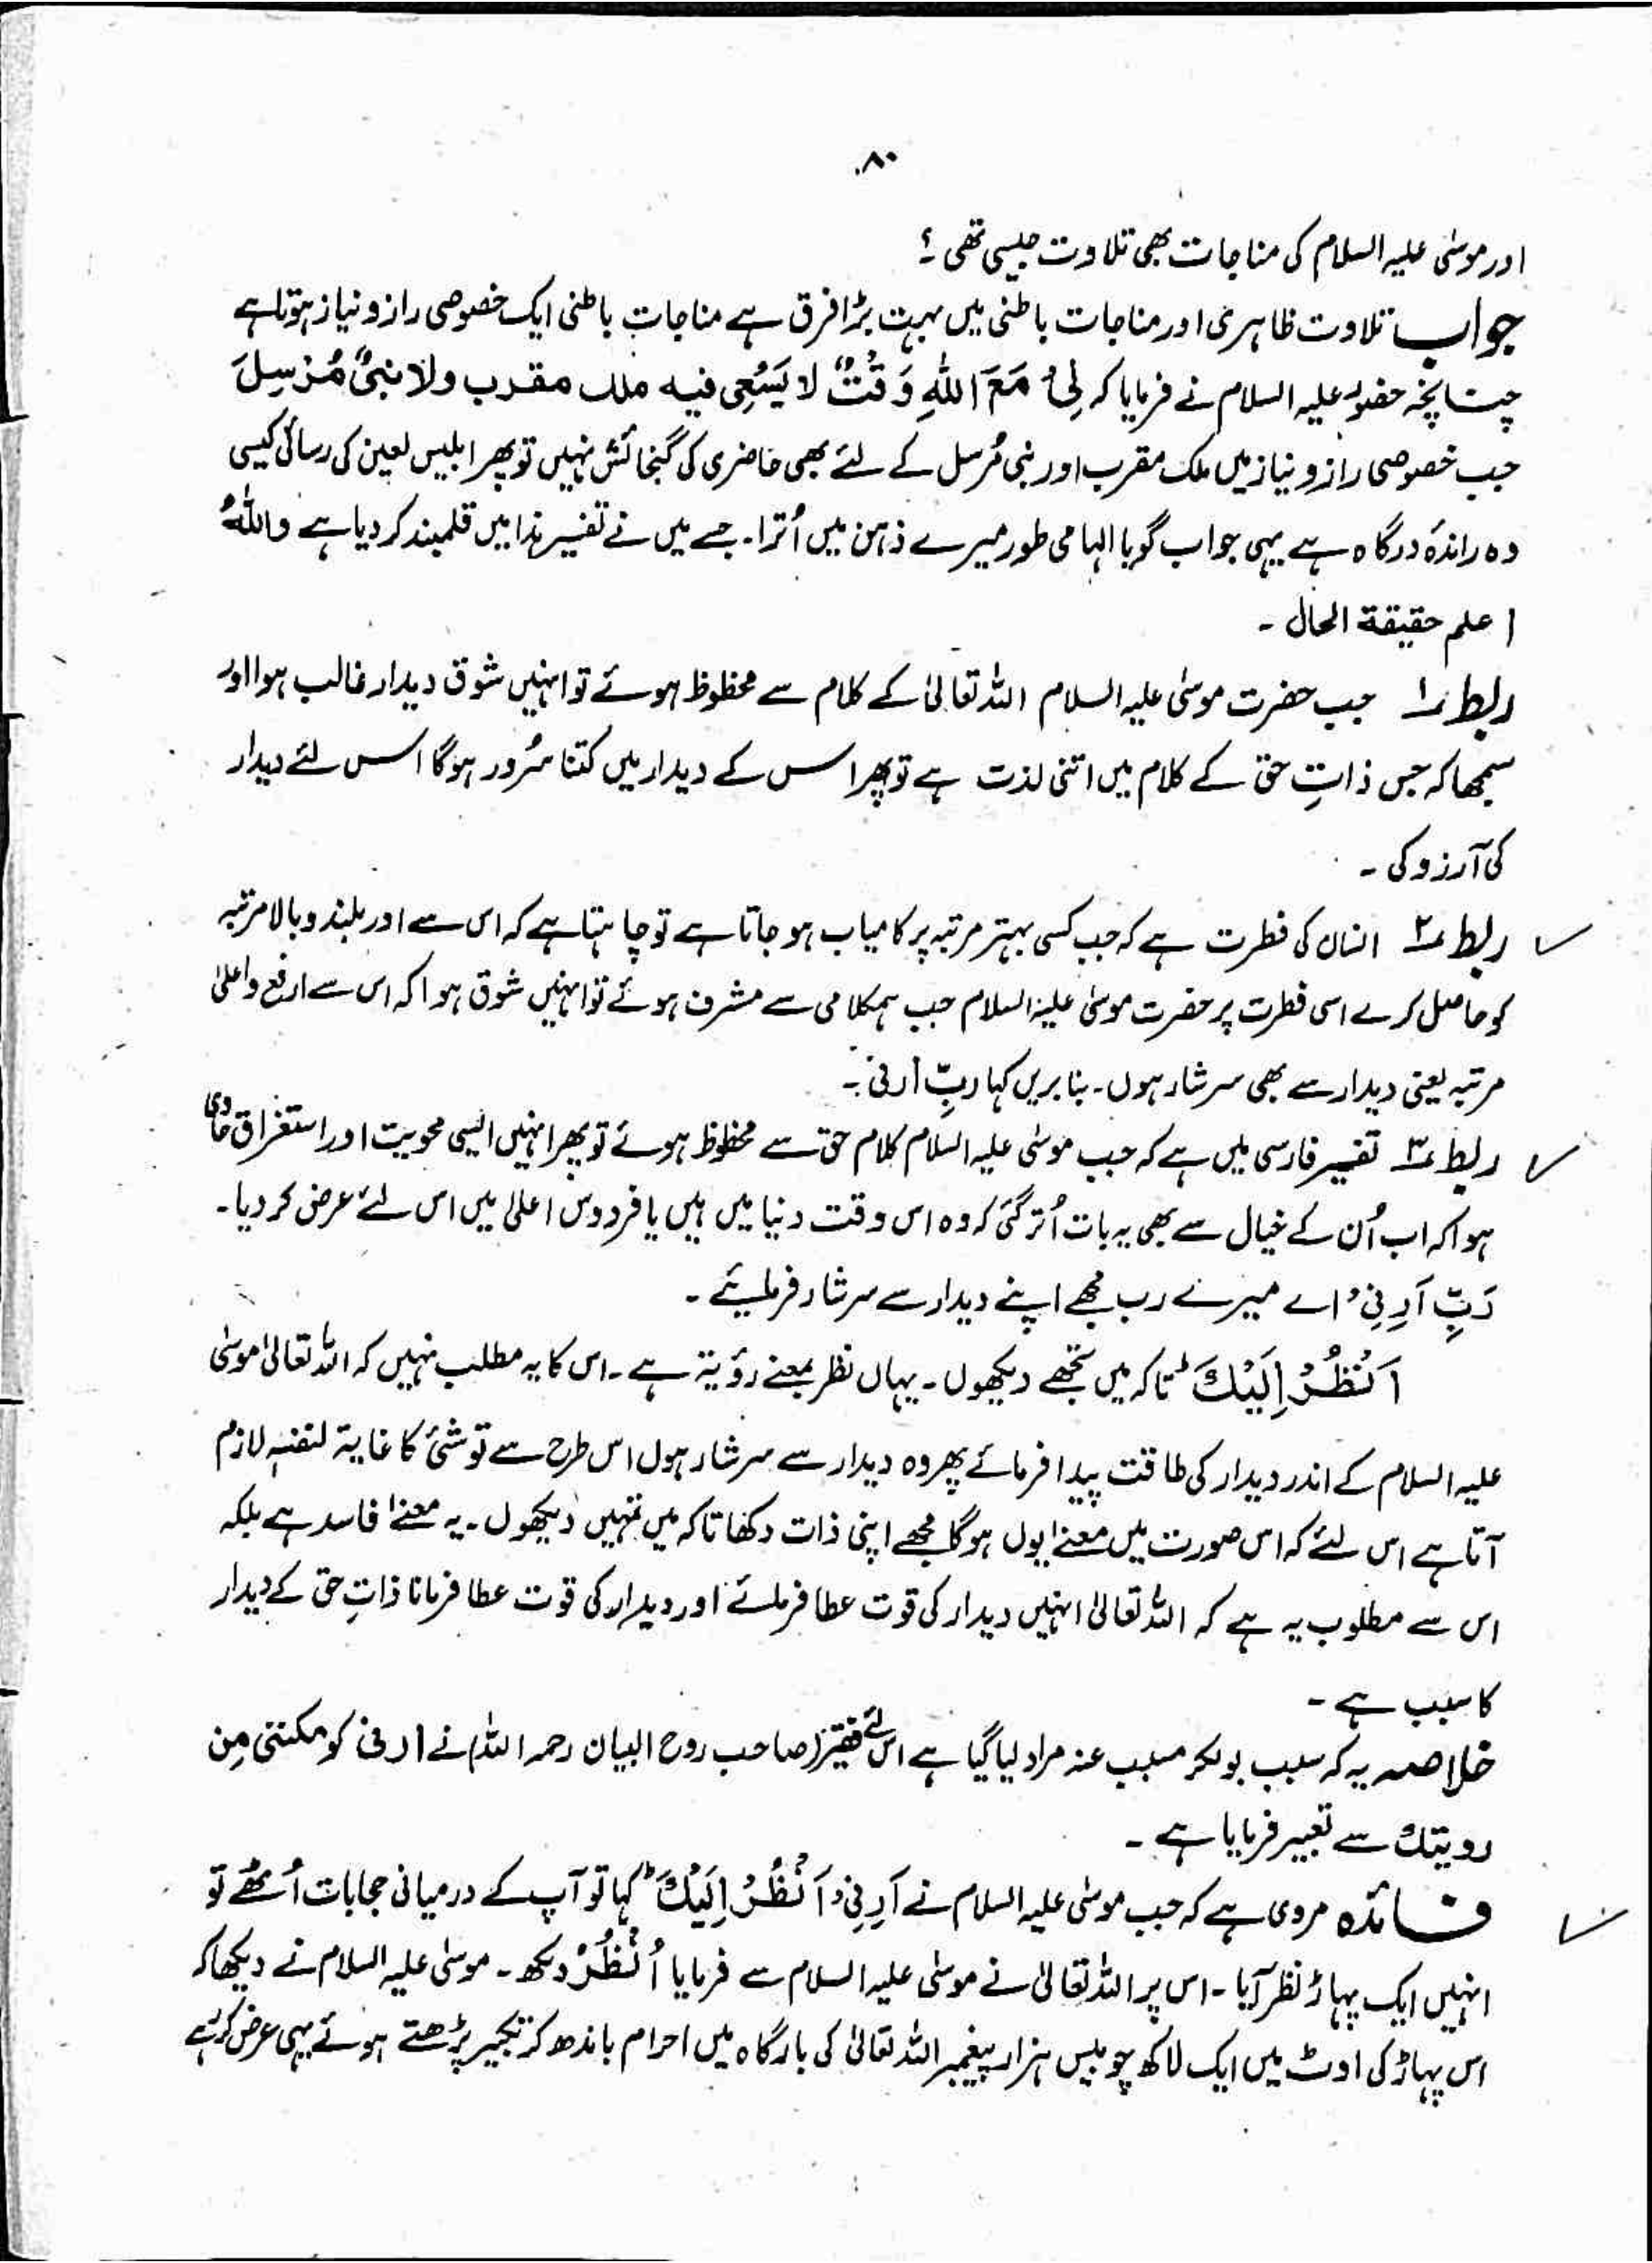 ۸۰
اور موسٰی علیہ السلام کی مناجات بھی تلاوت جیسی تھی ؟
جواب تلاوت ظاہری اور مناجات باطنی میں بہت بڑا فرق ہے مناجاتِ باطنی ایک خصوصی راز و نیاز ہوتا ہے
چنانچہ حضور علیہ السلام نے فرمایا کہ لِیْ مَعَ اللّٰهِ وَقْتٌ لا یَسَعُنِی فیه ملك مقرب ولا نبیٌّ مُرْسِلَ
جب خصوصی راز و نیاز میں ملک مقرب اور نبی مُرسل کے لئے بھی حاضری کی گنجائش نہیں تو پھر ابلیس لعین کی رسائی کیسی
وہ راندۂ درگاہ ہے یہی جواب گویا الہامی طور میرے ذہن میں اُترا۔ جسے میں نے تفسیر ہذا میں قلمبند کر دیا ہے واللّٰہُ
اعلم حقیقة الحال ۔
ربط ۱؎ جب حضرت موسٰی علیہ السلام اللہ تعالٰی کے کلام سے محظوظ ہوئے تو انہیں شوق دیدار غالب ہوا اور
سمجھا کہ جس ذاتِ حق کے کلام میں اتنی لذت ہے تو پھر اس کے دیدار میں کتنا سُرور ہوگا اس لئے دیدار
کی آرزو کی ۔
ربط ۲؎ انسان کی فطرت ہے کہ جب کسی بہتر مرتبہ پر کامیاب ہو جاتا ہے تو چاہتا ہے کہ اس سے اور بلند و بالا مرتبہ
کو حاصل کرے اسی فطرت پر حضرت موسٰی علیہ السلام جب ہمکلامی سے مشرف ہوئے تو انہیں شوق ہوا کہ اس سے ارفع و اعلٰی
مرتبہ یعنی دیدار سے بھی سرشار ہوں۔ بنابریں کہا ربِّ ارنی ۔
ربط ۳؎ تفسیر فارسی میں ہے کہ جب موسٰی علیہ السلام کلام حق سے محظوظ ہوئے تو پھر انہیں ایسی محویت اور استغراق طاری
ہوا کہ اب اُن کے خیال سے بھی یہ بات اُتر گئی کہ وہ اس وقت دنیا میں ہیں یا فردوس اعلٰی میں اس لئے عرض کر دیا۔
رَبِّ اَرِنِیْ اے میرے رب مجھے اپنے دیدار سے سرشار فرمائیے ۔
اَنْظُرْ اِلَیْكَ ؕ تاکہ میں تجھے دیکھوں۔ یہاں نظر بمعنے رؤیة ہے ۔ اس کا یہ مطلب نہیں کہ اللہ تعالٰی موسٰی
علیہ السلام کے اندر دیدار کی طاقت پیدا فرمائے پھر وہ دیدار سے سرشار ہوں اس طرح سے تو شئ کا غایة لنفسہٖ لازم
آتا ہے اس لئے کہ اس صورت میں معنے یوں ہوگا مجھے اپنی ذات دکھا تاکہ میں تمہیں دیکھوں۔ یہ معنے فاسد ہے بلکہ
اس سے مطلوب یہ ہے کہ اللہ تعالٰی انہیں دیدار کی قوت عطا فرمائے اور دیدار کی قوت عطا فرمانا ذاتِ حق کے دیدار
کا سبب ہے ۔
خلاصہ یہ کہ سبب بولکر مسبب عنہ مراد لیا گیا ہے اس لئے فقیر (صاحب روح البیان رحمہ اللہ) نے ارنی کو مکننی مِن
رویتك سے تعبیر فرمایا ہے ۔
فائدہ مروی ہے کہ جب موسٰی علیہ السلام نے اَرِنِیْ اَنْظُرْ اِلَیْكَ ؕ کہا تو آپ کے درمیانی حجابات اُٹھے تو
انہیں ایک پہاڑ نظر آیا ۔ اس پر اللہ تعالٰی نے موسٰی علیہ السلام سے فرمایا اُنْظُرْ دیکھ ۔ موسٰی علیہ السلام نے دیکھا کہ
اس پہاڑ کی اوٹ میں ایک لاکھ چوبیس ہزار پیغمبر اللہ تعالٰی کی بارگاہ میں احرام باندھ کر تکبیر پڑھتے ہوئے یہی عرض کر رہے